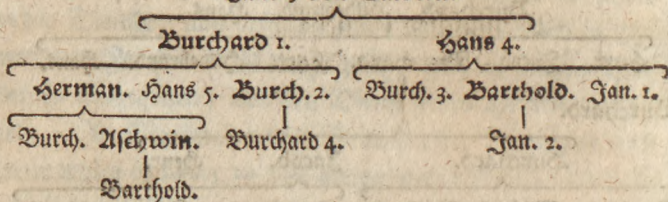 Burchard 1. Hans 4.
Herman. Hans 5. Burch. 2. Burch. 3. Barthold. Jan. 1.
Burch. Aschwin. Burchard 4. Jan. 2.
Barthold.